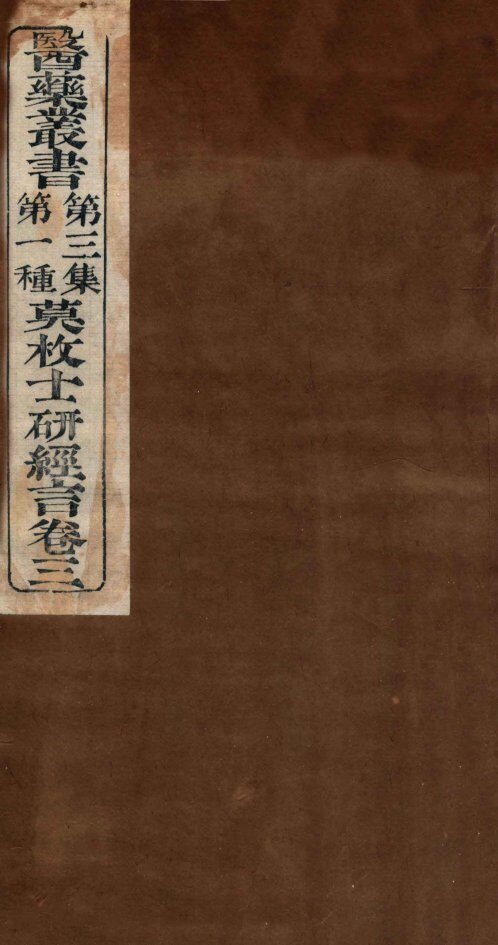 醫藥叢書
第三集
第一種
莫枚士研經言卷三